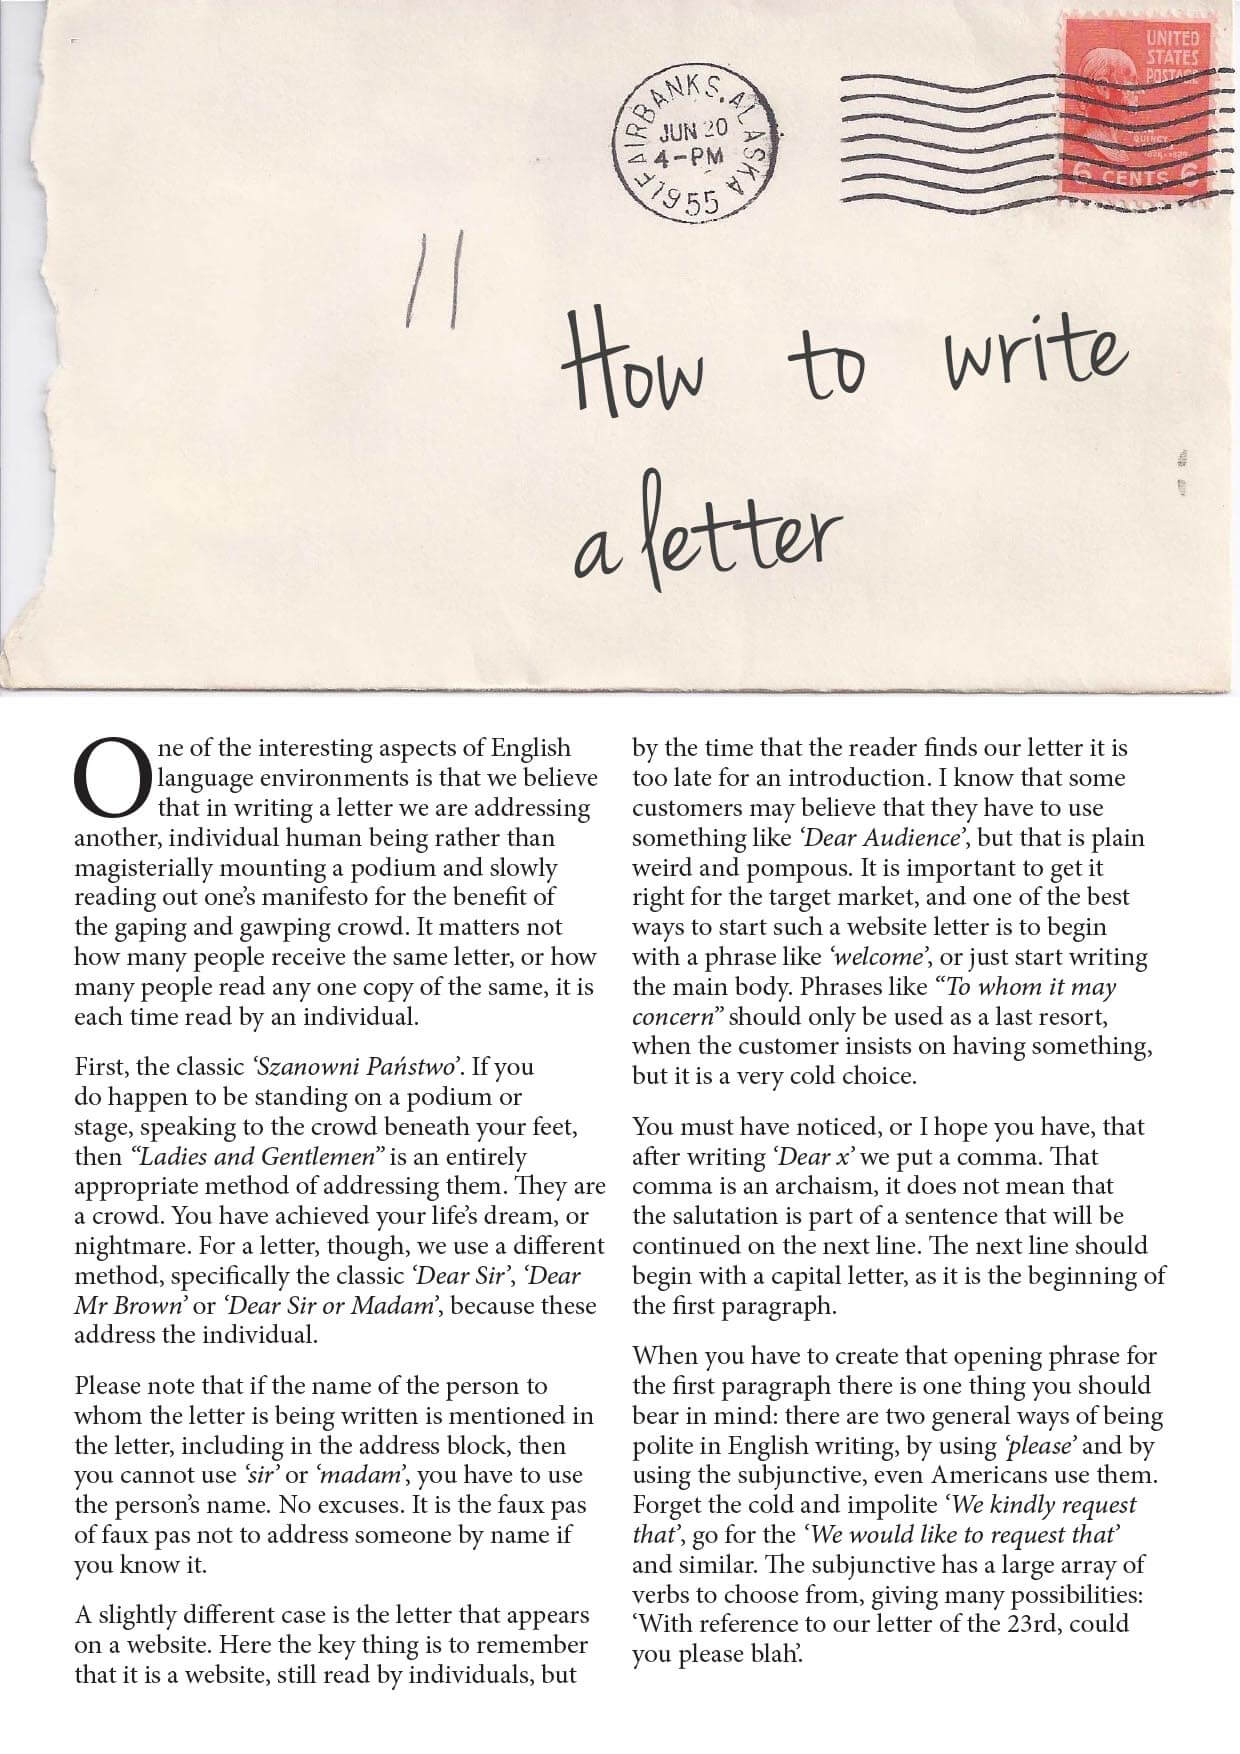 UNITED
STATES
POSTAGE
FAIRBANKS, ALASKA
JUN 20
4-PM
1955
QUINCY
6 CENTS 6
11
How to write
a letter
One of the interesting aspects of English
language environments is that we believe
that in writing a letter we are addressing
another, individual human being rather than
magisterially mounting a podium and slowly
reading out one’s manifesto for the benefit of
the gaping and gawping crowd. It matters not
how many people receive the same letter, or how
many people read any one copy of the same, it is
each time read by an individual.
First, the classic ‘Szanowni Państwo’. If you
do happen to be standing on a podium or
stage, speaking to the crowd beneath your feet,
then “Ladies and Gentlemen” is an entirely
appropriate method of addressing them. They are
a crowd. You have achieved your life’s dream, or
nightmare. For a letter, though, we use a different
method, specifically the classic ‘Dear Sir’, ‘Dear
Mr Brown’ or ‘Dear Sir or Madam’, because these
address the individual.
Please note that if the name of the person to
whom the letter is being written is mentioned in
the letter, including in the address block, then
you cannot use ‘sir’ or ‘madam’, you have to use
the person’s name. No excuses. It is the faux pas
of faux pas not to address someone by name if
you know it.
A slightly different case is the letter that appears
on a website. Here the key thing is to remember
that it is a website, still read by individuals, but
by the time that the reader finds our letter it is
too late for an introduction. I know that some
customers may believe that they have to use
something like ‘Dear Audience’, but that is plain
weird and pompous. It is important to get it
right for the target market, and one of the best
ways to start such a website letter is to begin
with a phrase like ‘welcome’, or just start writing
the main body. Phrases like “To whom it may
concern” should only be used as a last resort,
when the customer insists on having something,
but it is a very cold choice.
You must have noticed, or I hope you have, that
after writing ‘Dear x’ we put a comma. That
comma is an archaism, it does not mean that
the salutation is part of a sentence that will be
continued on the next line. The next line should
begin with a capital letter, as it is the beginning of
the first paragraph.
When you have to create that opening phrase for
the first paragraph there is one thing you should
bear in mind: there are two general ways of being
polite in English writing, by using ‘please’ and by
using the subjunctive, even Americans use them.
Forget the cold and impolite ‘We kindly request
that’, go for the ‘We would like to request that’
and similar. The subjunctive has a large array of
verbs to choose from, giving many possibilities:
‘With reference to our letter of the 23rd, could
you please blah’.